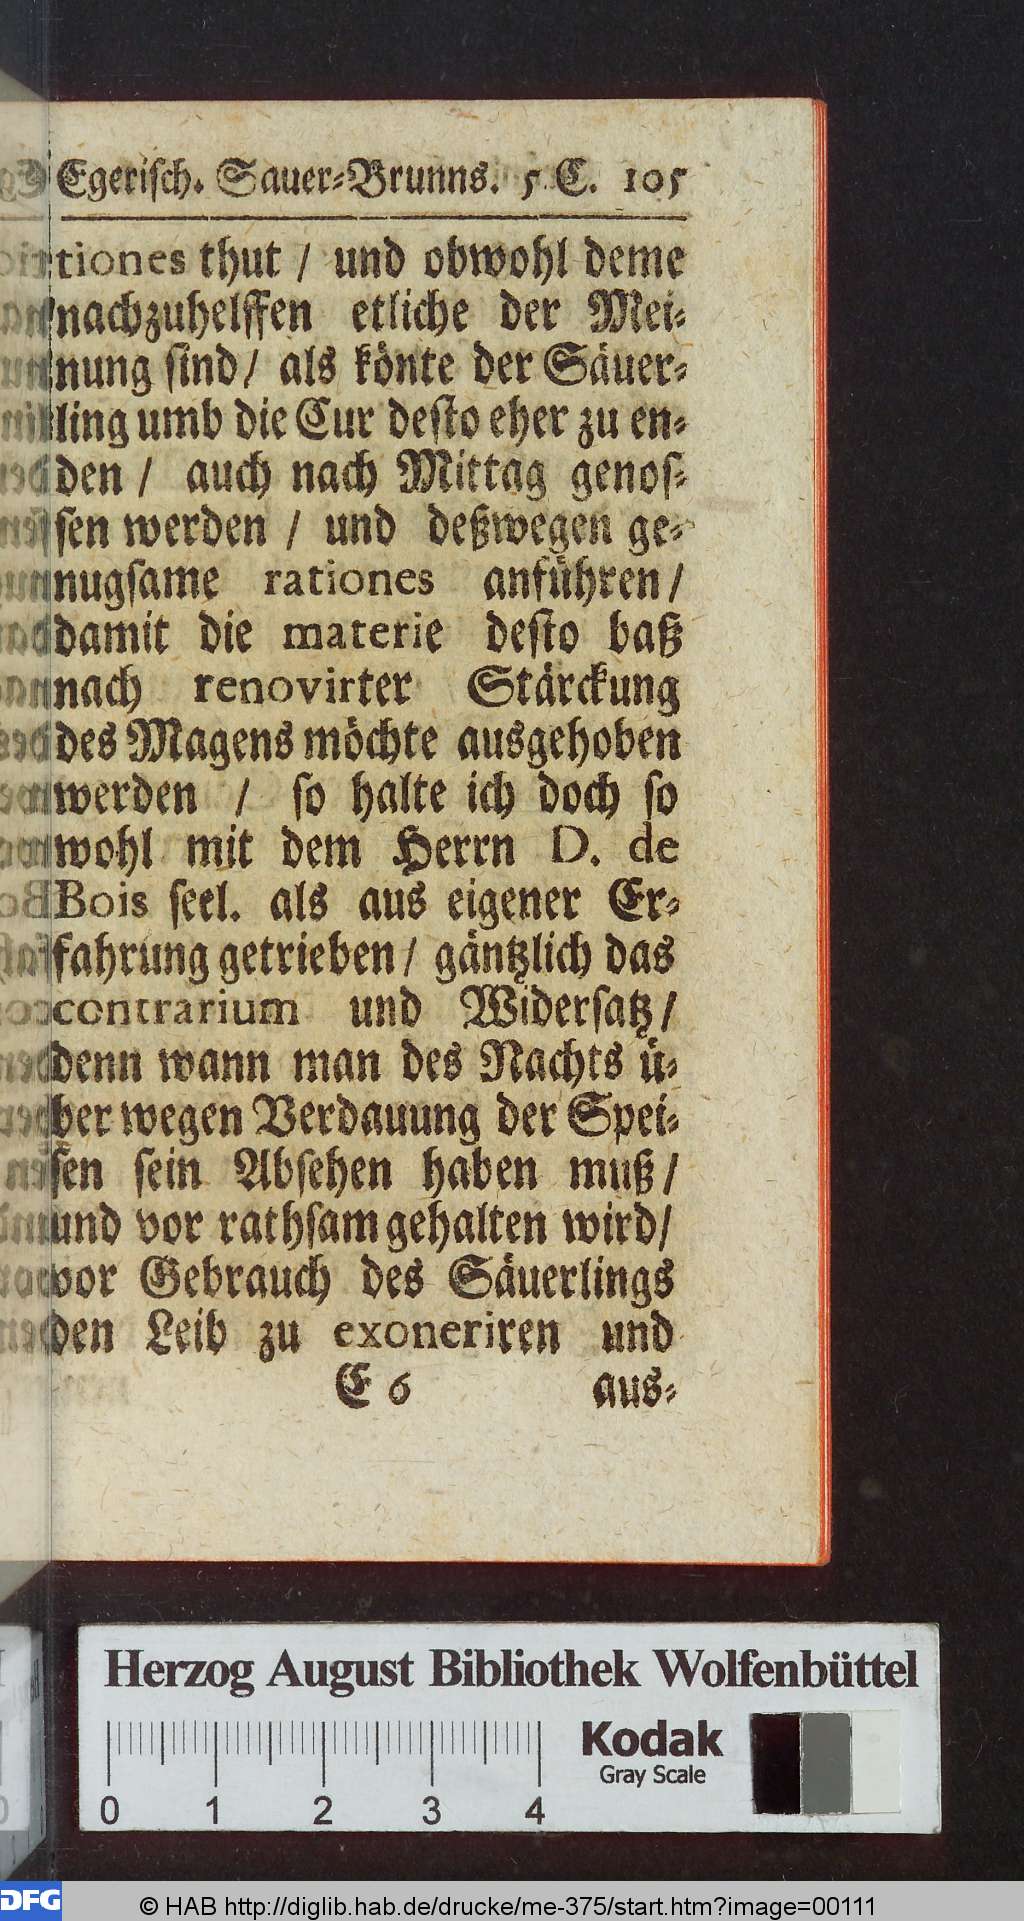 Egerisch. Sauer-Brunns. 5 C. 105
tiones thut / und obwohl deme
nachzuhelffen etliche der Mei-
nung sind / als könte der Säuer-
ling umb die Cur desto eher zu en-
den / auch nach Mittag genos-
sen werden / und deßwegen ge-
nugsame rationes anführen /
damit die materie desto baß
nach renovirter Stärckung
des Magens möchte ausgehoben
werden / so halte ich doch so
wohl mit dem Herrn D. de
Bois seel. als aus eigener Er-
fahrung getrieben / gäntzlich das
contrarium und Widersatz /
denn wann man des Nachts ü-
ber wegen Verdauung der Spei-
sen sein Absehen haben muß /
und vor rathsam gehalten wird /
vor Gebrauch des Säuerlings
den Leib zu exoneriren und
E 6 aus-
Herzog August Bibliothek Wolfenbüttel
Kodak
Gray Scale
0 1 2 3 4
DFG © HAB http://diglib.hab.de/drucke/me-375/start.htm?image=00111